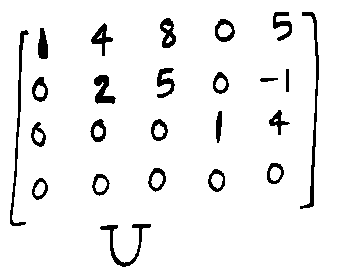 1 4 8 0 5
0 2 5 0 -1
0 0 0 1 4
0 0 0 0 0
U